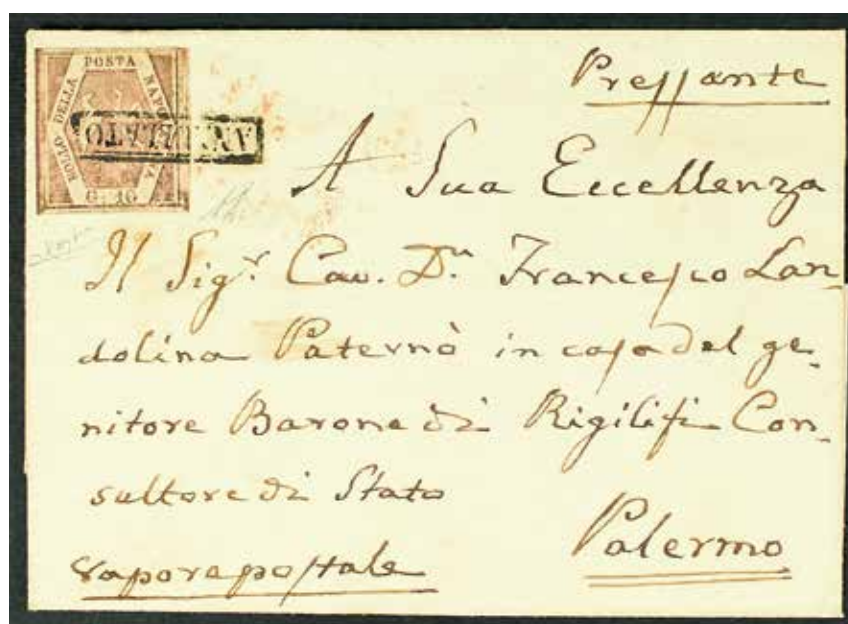 BOLLO DELLA POSTA NAPO
G. 10
ANNULLATO
Preſſante
A Sua Eccellenza
Il Sigr. Cav. Dn Franceſco Lan-
dolina Paternò in caſa del ge-
nitore Barone di Rigilifi Con-
sultore di Stato
Palermo
Vapore poſtale